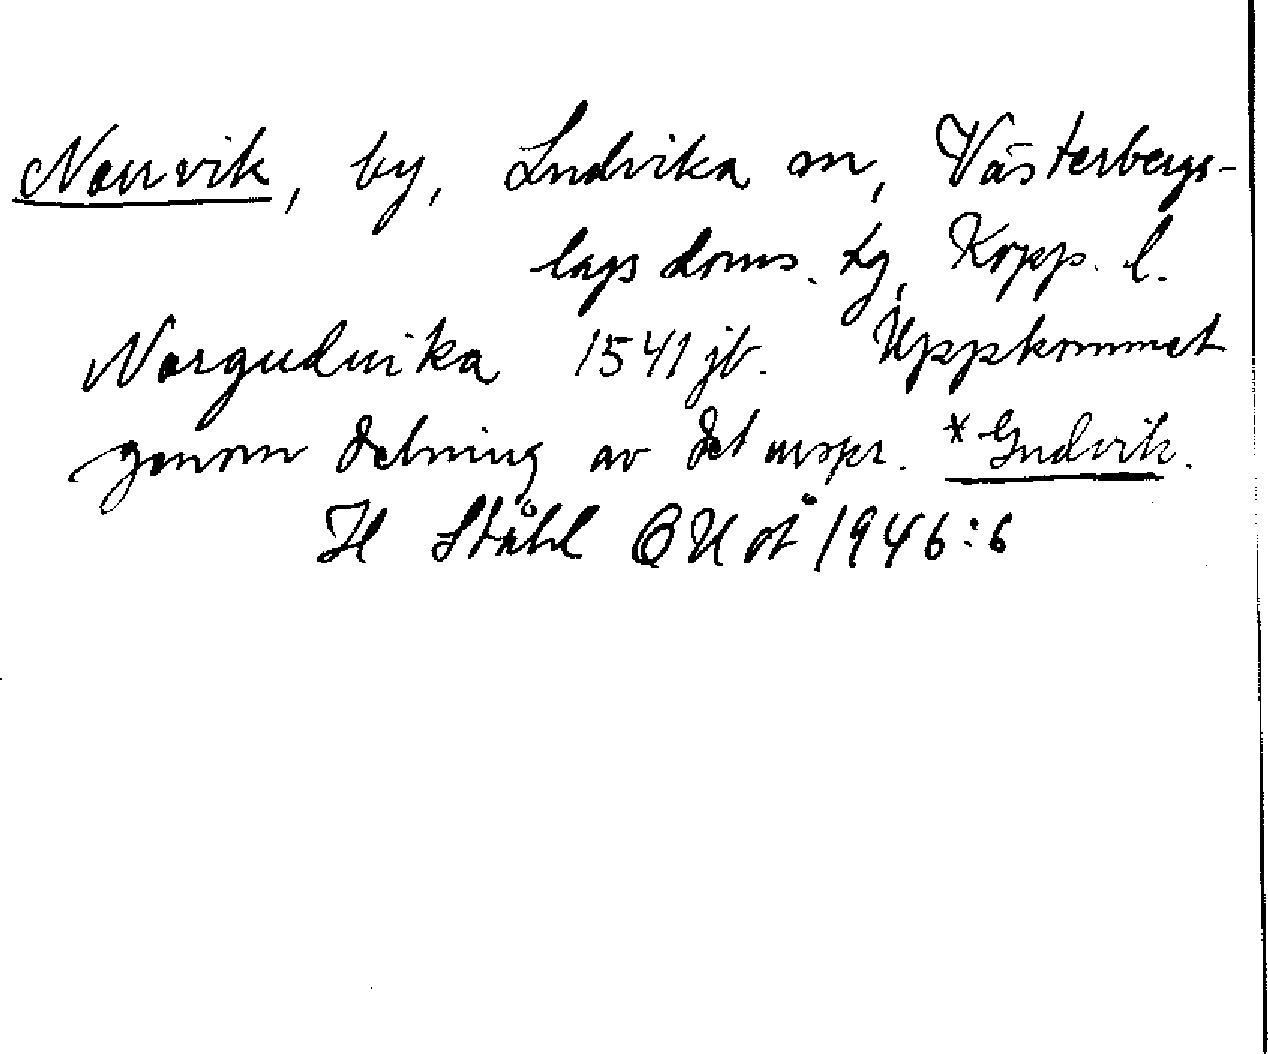 Norrvik, by, Ludvika sn, Västerbergs-
lags doms. tg, Kopp. l.
Norguduika 1541 jb. Uppkommet
genom delning av det urspr. *Gudvik.
H Ståhl OUÅ 1946:6